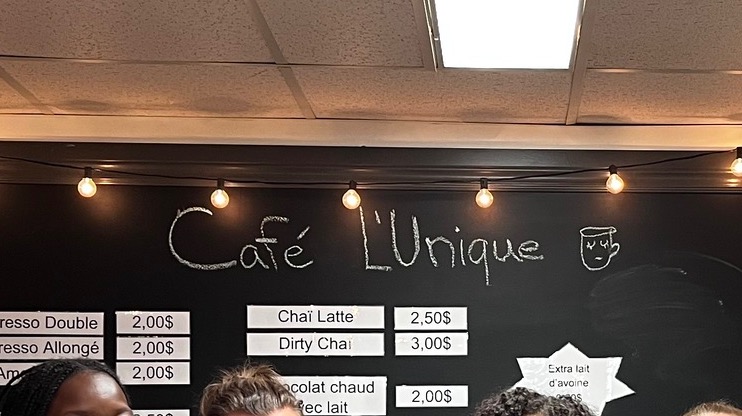 Café L'Unique
resso Double 2,00$
resso Allongé 2,00$
2,00$
Chaï Latte 2,50$
Dirty Chaï 3,00$
ocolat chaud
vec lait
2,00$
Extra lait
d'avoine